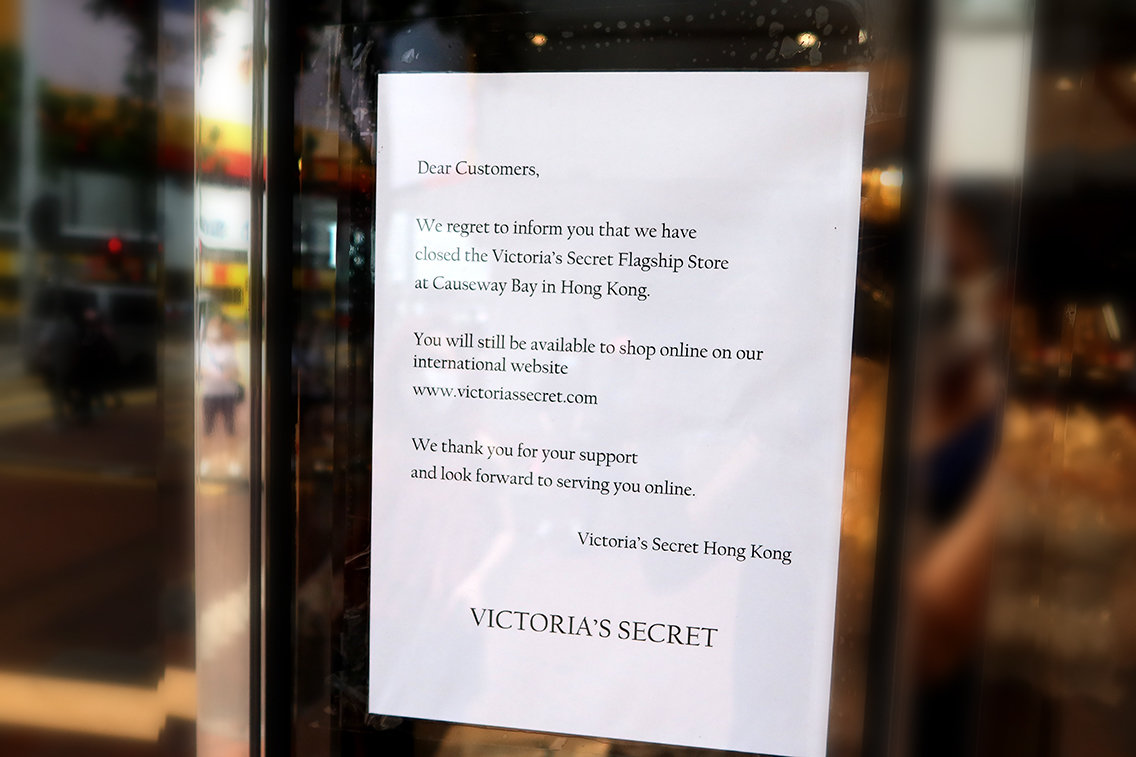 Dear Customers,
We regret to inform you that we have
closed the Victoria's Secret Flagship Store
at Causeway Bay in Hong Kong.
You will still be available to shop online on our
international website
www.victoriassecret.com
We thank you for your support
and look forward to serving you online.
Victoria's Secret Hong Kong
VICTORIA'S SECRET